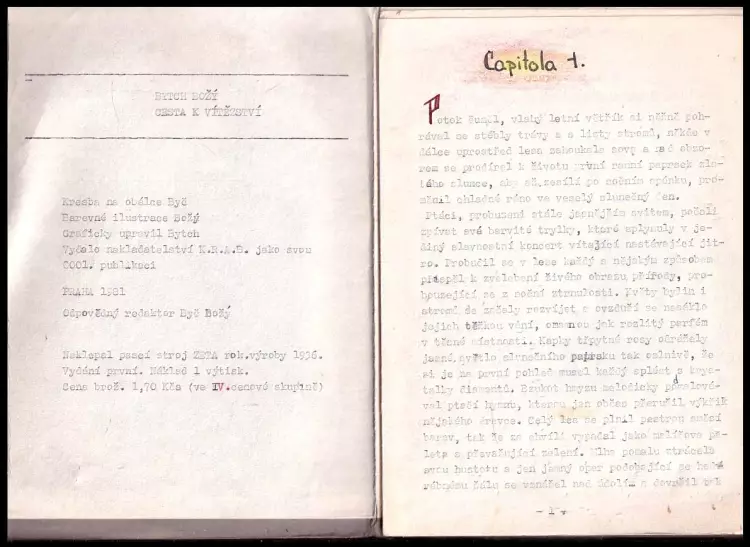 BYTCH BOŽÍ
CESTA K VÍTĚZSTVÍ
Kresba na obálce Byč
Barevné ilustrace Božý
Graficky upravil Bytch
Vydalo nakladatelství K.R.A.B. jako svou
0001. publikaci
PRAHA 1981
Odpovědný redaktor Byč Božý
Naklepal psací stroj ZETA rok.výroby 1936.
Vydání první. Náklad 1 výtisk.
Cena brož. 1,70 Kčs (ve IV.cenové skupině)
Capitola 1.
Potok šuměl, vlahý letní větřík si něžně poh-
rával se stébly trávy a s listy stromů, někde v
dálce uprostřed lesa zahoukala sova a nad obzo-
rem se prodíral k životu první ranní paprsek zla-
tého slunce, aby až zesílí po nočním spánku, pro-
měnil chladné ráno ve veselý slunečný den.
Ptáci, probuzeni stále jasnějším svitem, počali
zpívat své barvité trylky, které splynuly v je-
diný slavnostní koncert vítající nastávající jit-
ro. Probudil se v lese každý a nějakým způsobem
přispěl k zvelebení živého obrazu přírody, pro-
bouzející se z noční ztrnulosti. Květy bylin i
stromů se začaly rozvíjet a ovzduší se nasáklo
jejich těžkou vůní, omamnou jak rozlitý parfém
v těsné místnosti. Kapky třpytné rosy odrážely
jasné světlo slunečního paprsku tak oslnivě, že
si je na první pohled musel každý splést s krys-
talky diamantů. Bzukot hmyzu melodicky
ptačí hymnu, kterou jen občas přerušil výkřik
nějakého dravce. Celý les se plnil pestrou směsí
barev, tak že za chvíli vypadal jako malířova pa-
leta s převažující zelení. Mlha pomalu ztrácela
svou hustotu a jen jemný opar podobající se
šálu se vznášel nad údolím a dovršil tak
- 1 -